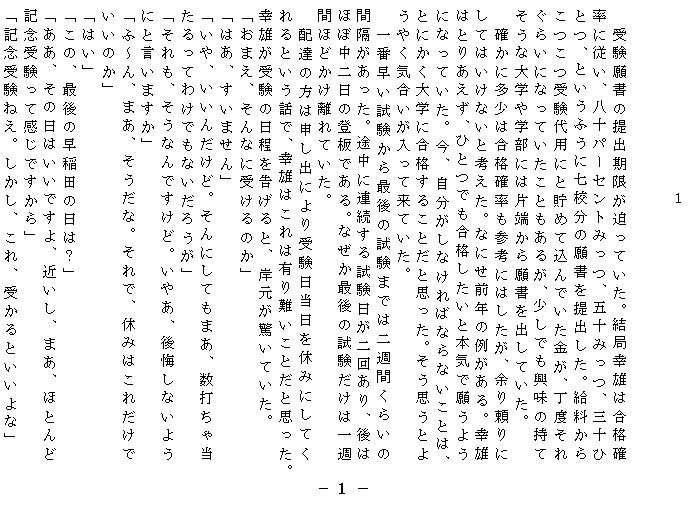 1
受験願書の提出期限が迫っていた。結局幸雄は合格確
率に従い、八十パーセントみっつ、五十みっつ、三十ひ
とつ、というふうに七校分の願書を提出した。給料から
こつこつ受験代用にと貯めて込んでいた金が、丁度それ
ぐらいになっていたこともあるが、少しでも興味の持て
そうな大学や学部には片端から願書を出していた。
確かに多少は合格確率も参考にはしたが、余り頼りに
してはいけないと考えた。なにせ前年の例がある。幸雄
はとりあえず、ひとつでも合格したいと本気で願うよう
になっていた。今、自分がしなければならないことは、
とにかく大学に合格することだと思った。そう思うとよ
うやく気合いが入って来ていた。
一番早い試験から最後の試験までは二週間くらいの
間隔があった。途中に連続する試験日が二回あり、後は
ほぼ中二日の登板である。なぜか最後の試験だけは一週
間ほどかけ離れていた。
配達の方は申し出により受験日当日を休みにしてく
れるという話で、幸雄はこれは有り難いことだと思った。
幸雄が受験の日程を告げると、岸元が驚いていた。
「おまえ、そんなに受けるのか」
「はあ、すいません」
「いや、いいんだけど。そんにしてもまあ、数打ちゃ当
たるってわけでもないだろうが」
「それも、そうなんですけど。いやあ、後悔しないよう
にと言いますか」
「ふ～ん、まあ、そうだな。それで、休みはこれだけで
いいのか」
「はい」
「この、最後の早稲田の日は？」
「ああ、その日はいいですよ、近いし、まあ、ほとんど
記念受験って感じですから」
「記念受験ねえ。しかし、これ、受かるといいよな」
－ 1 －